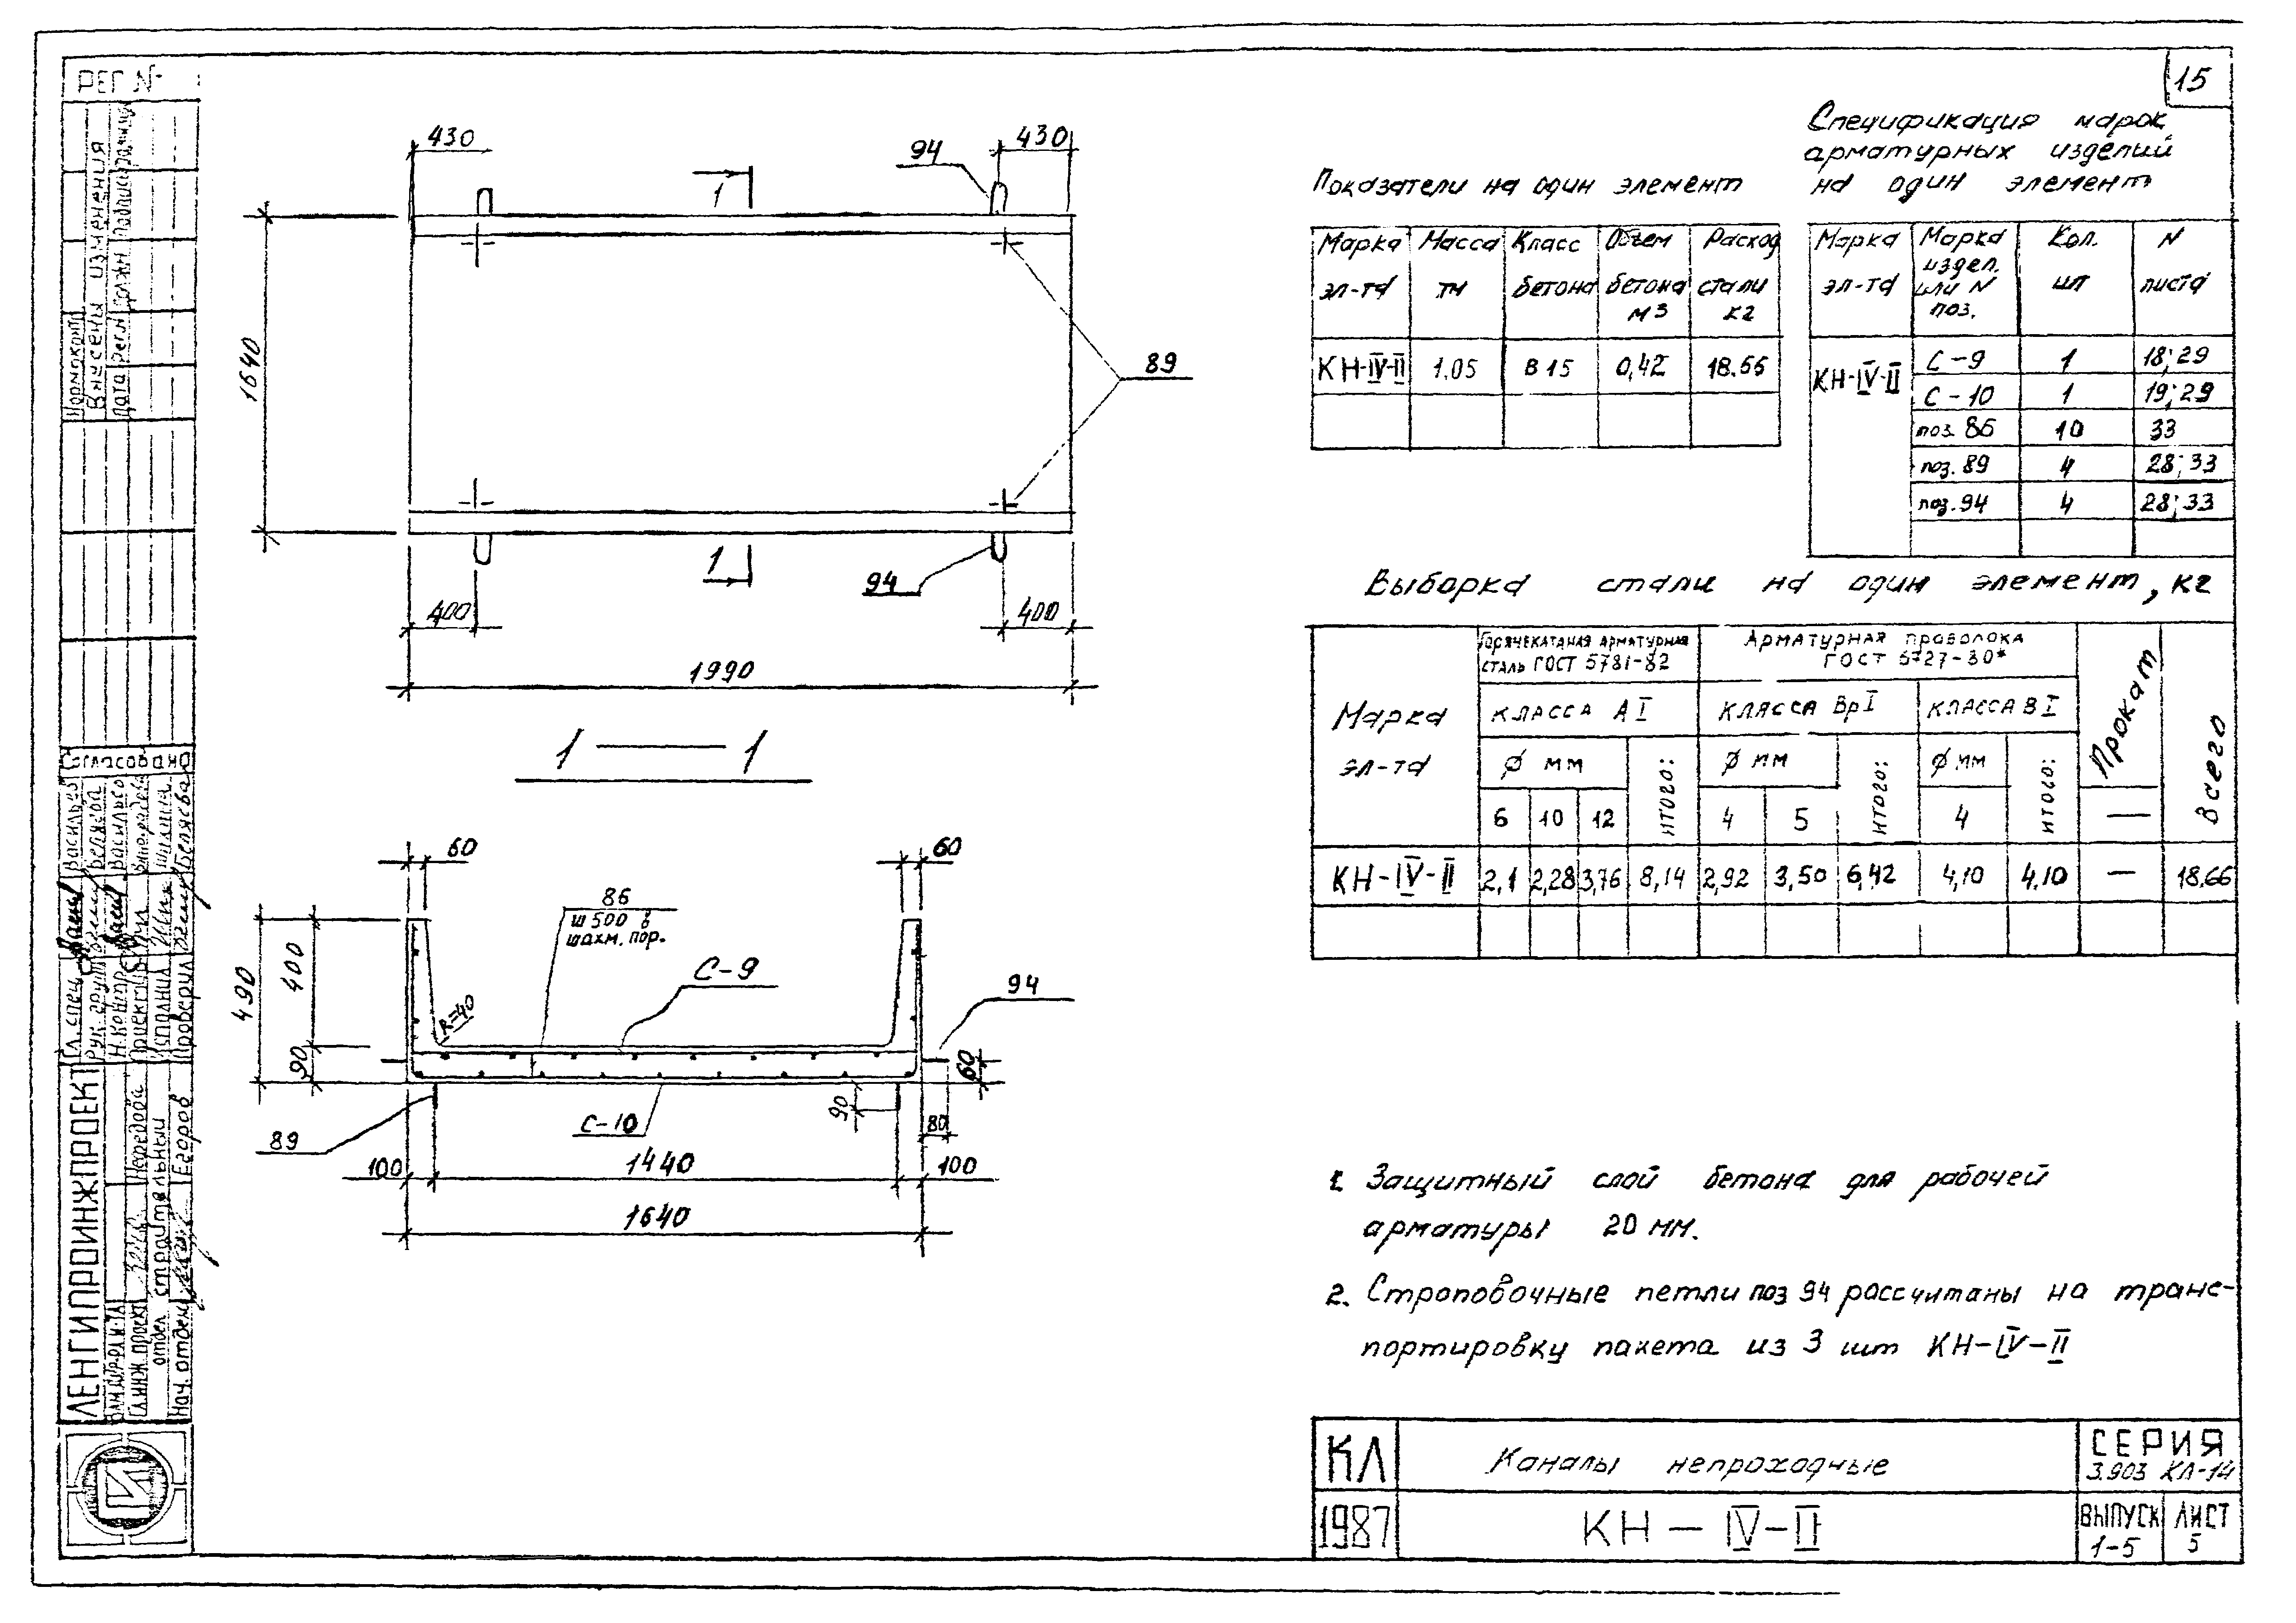 15
РЕГ. N
Внесены изменения
Нормоконтр
Дата
Рег.N
Должн
Подпись
Согласовано
Гл. спец.
Н. контр
Исполнил
Проверил
Васильев
Беляева
ЛЕНГИПРОИНЖПРОЕКТ
Гл. инж. проект
отдел строительный
Нач. отдела
Егоров
430
430
94
1
1640
89
1
94
400
400
1990
1 — 1
60
60
86
ш 500 в
шахм. пор.
С-9
94
490
400
90
R=40
60
89
С-10
90
80
100
1440
100
1640
Показатели на один элемент
Марка эл-та
Масса тн
Класс бетона
Объем бетона м3
Расход стали кг
КН-IV-II 1.05 В 15 0,42 18.66
Спецификация марок
арматурных изделий
на один элемент
Марка эл-та
Марка издел. или N поз.
Кол. шт
N листа
КН-IV-II
С-9 1 18; 29
С-10 1 19; 29
поз. 86 10 33
поз. 89 4 28; 33
поз. 94 4 28; 33
Выборка стали на один элемент, кг
Марка эл-та
Горячекатаная арматурная
сталь ГОСТ 5781-82
Арматурная проволока
ГОСТ 6727-80*
Прокат
Всего
КЛАССА АI
КЛАССА ВрI
КЛАССА ВI
Ø мм
ИТОГО:
Ø мм
ИТОГО:
Ø мм
ИТОГО:
6 10 12 4 5 4 —
КН-IV-II 2,1 2,28 3,76 8,14 2,92 3,50 6,42 4,10 4.10 — 18.66
1. Защитный слой бетона для рабочей
арматуры 20 мм.
2. Строповочные петли поз 94 рассчитаны на транс-
портировку пакета из 3 шт КН-IV-II
КЛ
Каналы непроходные
СЕРИЯ
3.903 КЛ-14
1987
КН-IV-II
ВЫПУСК
1-5
ЛИСТ
5